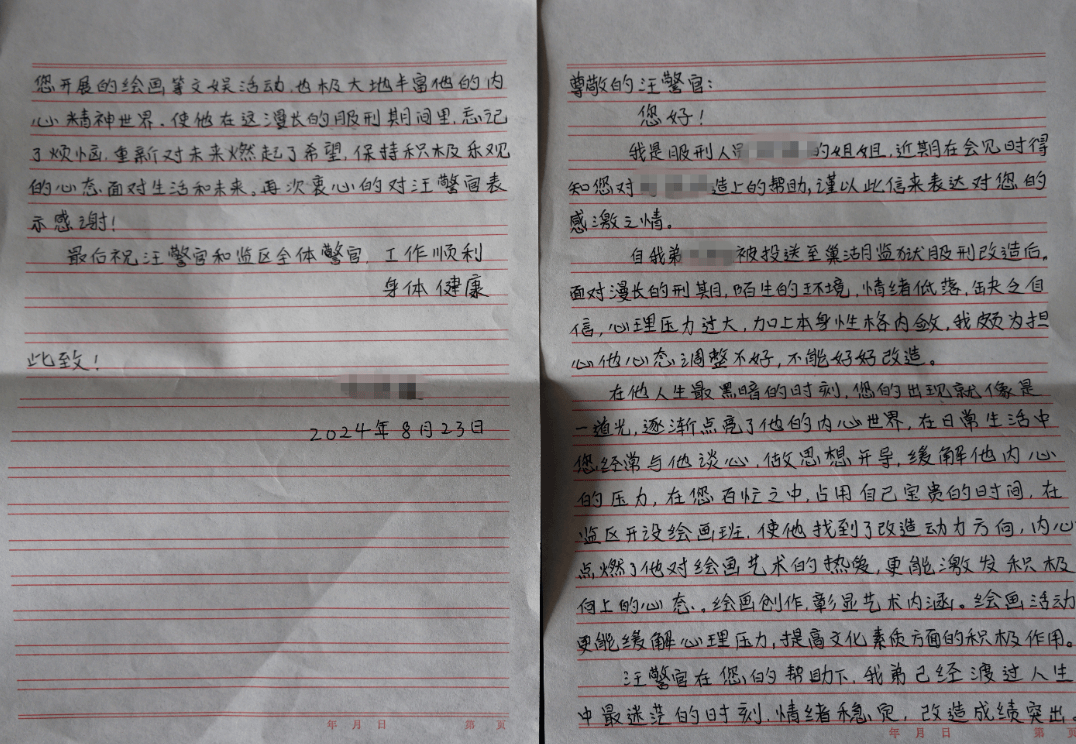 尊敬的汪警官：
您好！
我是服刑人员的姐姐，近期在会见时得
知您对造上的帮助，谨以此信来表达对您的
感激之情。
自我弟被投送至巢湖监狱服刑改造后。
面对漫长的刑期，陌生的环境，情绪低落，缺乏自
信，心理压力过大，加上本身性格内敛，我颇为担
心他心态调整不好，不能好好改造。
在他人生最黑暗的时刻，您的出现就像是
一道光，逐渐点亮了他的内心世界，在日常生活中
您经常与他谈心，做思想开导，缓解他内心
的压力，在您百忙之中，占用自己宝贵的时间，在
监区开设绘画班，使他找到了改造动力方向，内心
点燃了他对绘画艺术的热爱，更能激发积极
向上的心态、。绘画创作，彰显艺术内涵。绘画活动
更能缓解心理压力，提高文化素质方面的积极作用。
汪警官在您的帮助下，我弟已经渡过人生
中最迷茫的时刻，情绪稳定，改造成绩突出。
年 月 日 第 页
您开展的绘画等文娱活动，也极大地丰富他的内
心精神世界、使他在这漫长的服刑期间里，忘记
了烦恼，重新对未来燃起了希望，保持积极乐观
的心态面对生活和未来，再次衷心的对汪警官表
示感谢！
最后祝汪警官和监区全体警官，工作顺利
身体健康
此致！
2024年8月23日
年 月 日 第 页